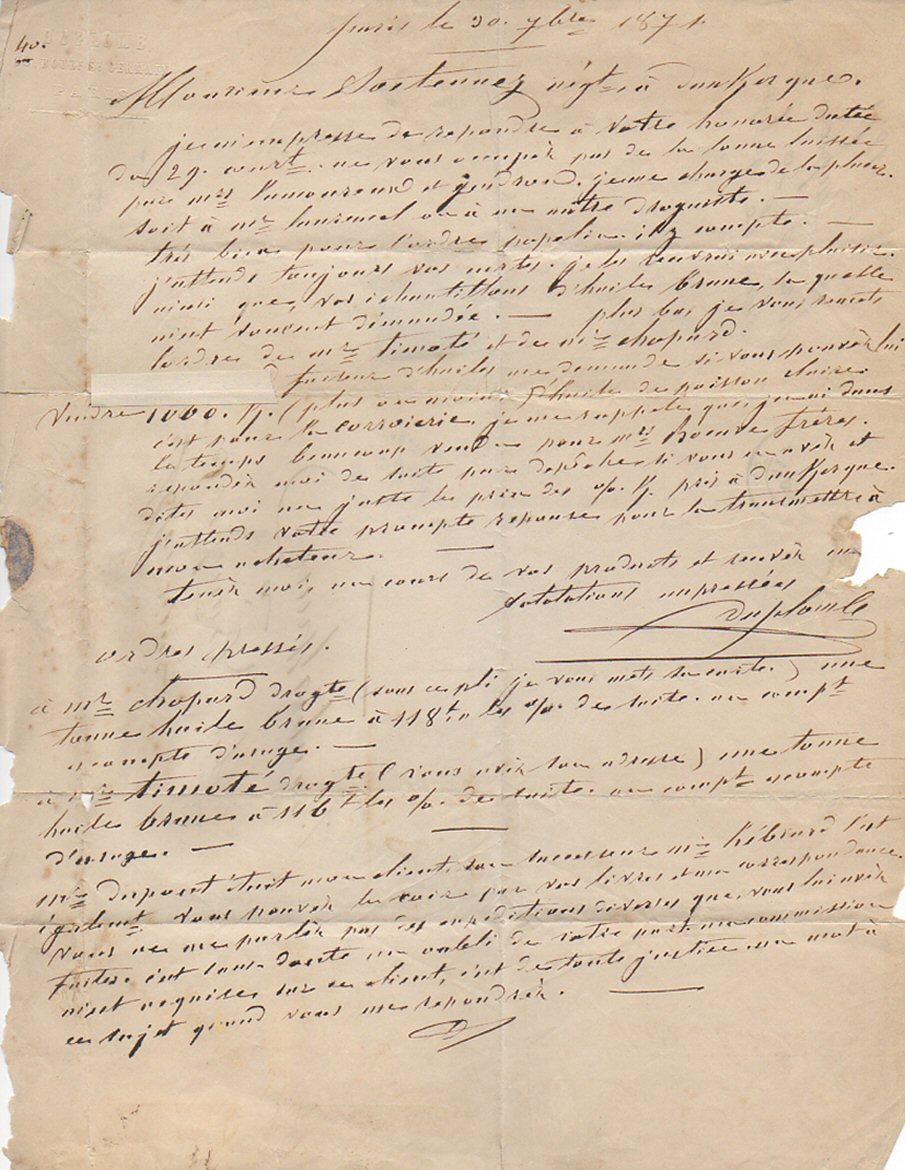 40.
PARIS
paris le 30. 7bre 1871.
Monsieur négt à dunkerque.
je m'empresse de repondre à votre honorée datée
du 29. court. ne vous occupér pas de la tonne laissée
par mrs Lamoureux et gendrod. je me charge de la placer
soit à mr ou à un autre droguiste. —
très bien pour l'ordre papelin. il y compte. —
j'attends toujours vos notes. je les recevrai avec plaisir
ainsi que, vos échantillons d'huiles brune, la quelle
m'est souvent démandée. — plus bas, je vous remets
l'ordres de mr timoté et de mr chapard.
facteur d'huiles me demande si vous pouvér lui
vendre 1000. K. (plus ou moins) d'huile de poisson claire
c'est pour la corroierie. je me rappele que, j'en ai dans
le temps beaucoup vendu pour mrs Bourve frères.
repondér moi de suite par depêche si vous en avér et
dites moi au juste le prix des %. K. pris à dunkerque.
j'attends votre prompte reponse pour la transmettre à
mon acheteur. —
tenér moi, au cours de vos products et recevér mes
salutations empressées
duplomb
ordres pressés.
à mr chapard drogte (sous ce pli je vous mets sa carte.) une
tonne huile brune à 118f les %. de suite. au compt
escompte d'usage. —
à mr timoté drogte (vous avér son adresse) une tonne
huile brune à 116f les %. de suite. au compt escompte
d'usage. —
mr dupont était mon client, son successeur mr hébrard l'est
égalemt vous pouvér le voir par vos livres et ma correspondance.
vous ne me parlér pas des expéditions diverses que, vous lui avér
faites. c'est sans doute un oubli de votre part. ma commission
m'est acquise sur ce client, c'est de toute justice. un mot à
ce sujet quand vous me repondrér. —